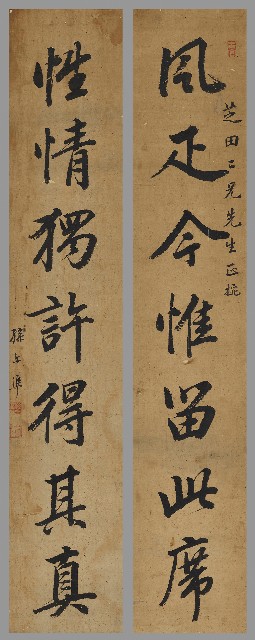 風疋今惟留此席
芝田二兄先生正挩
性情獨許得其真
孫玉準